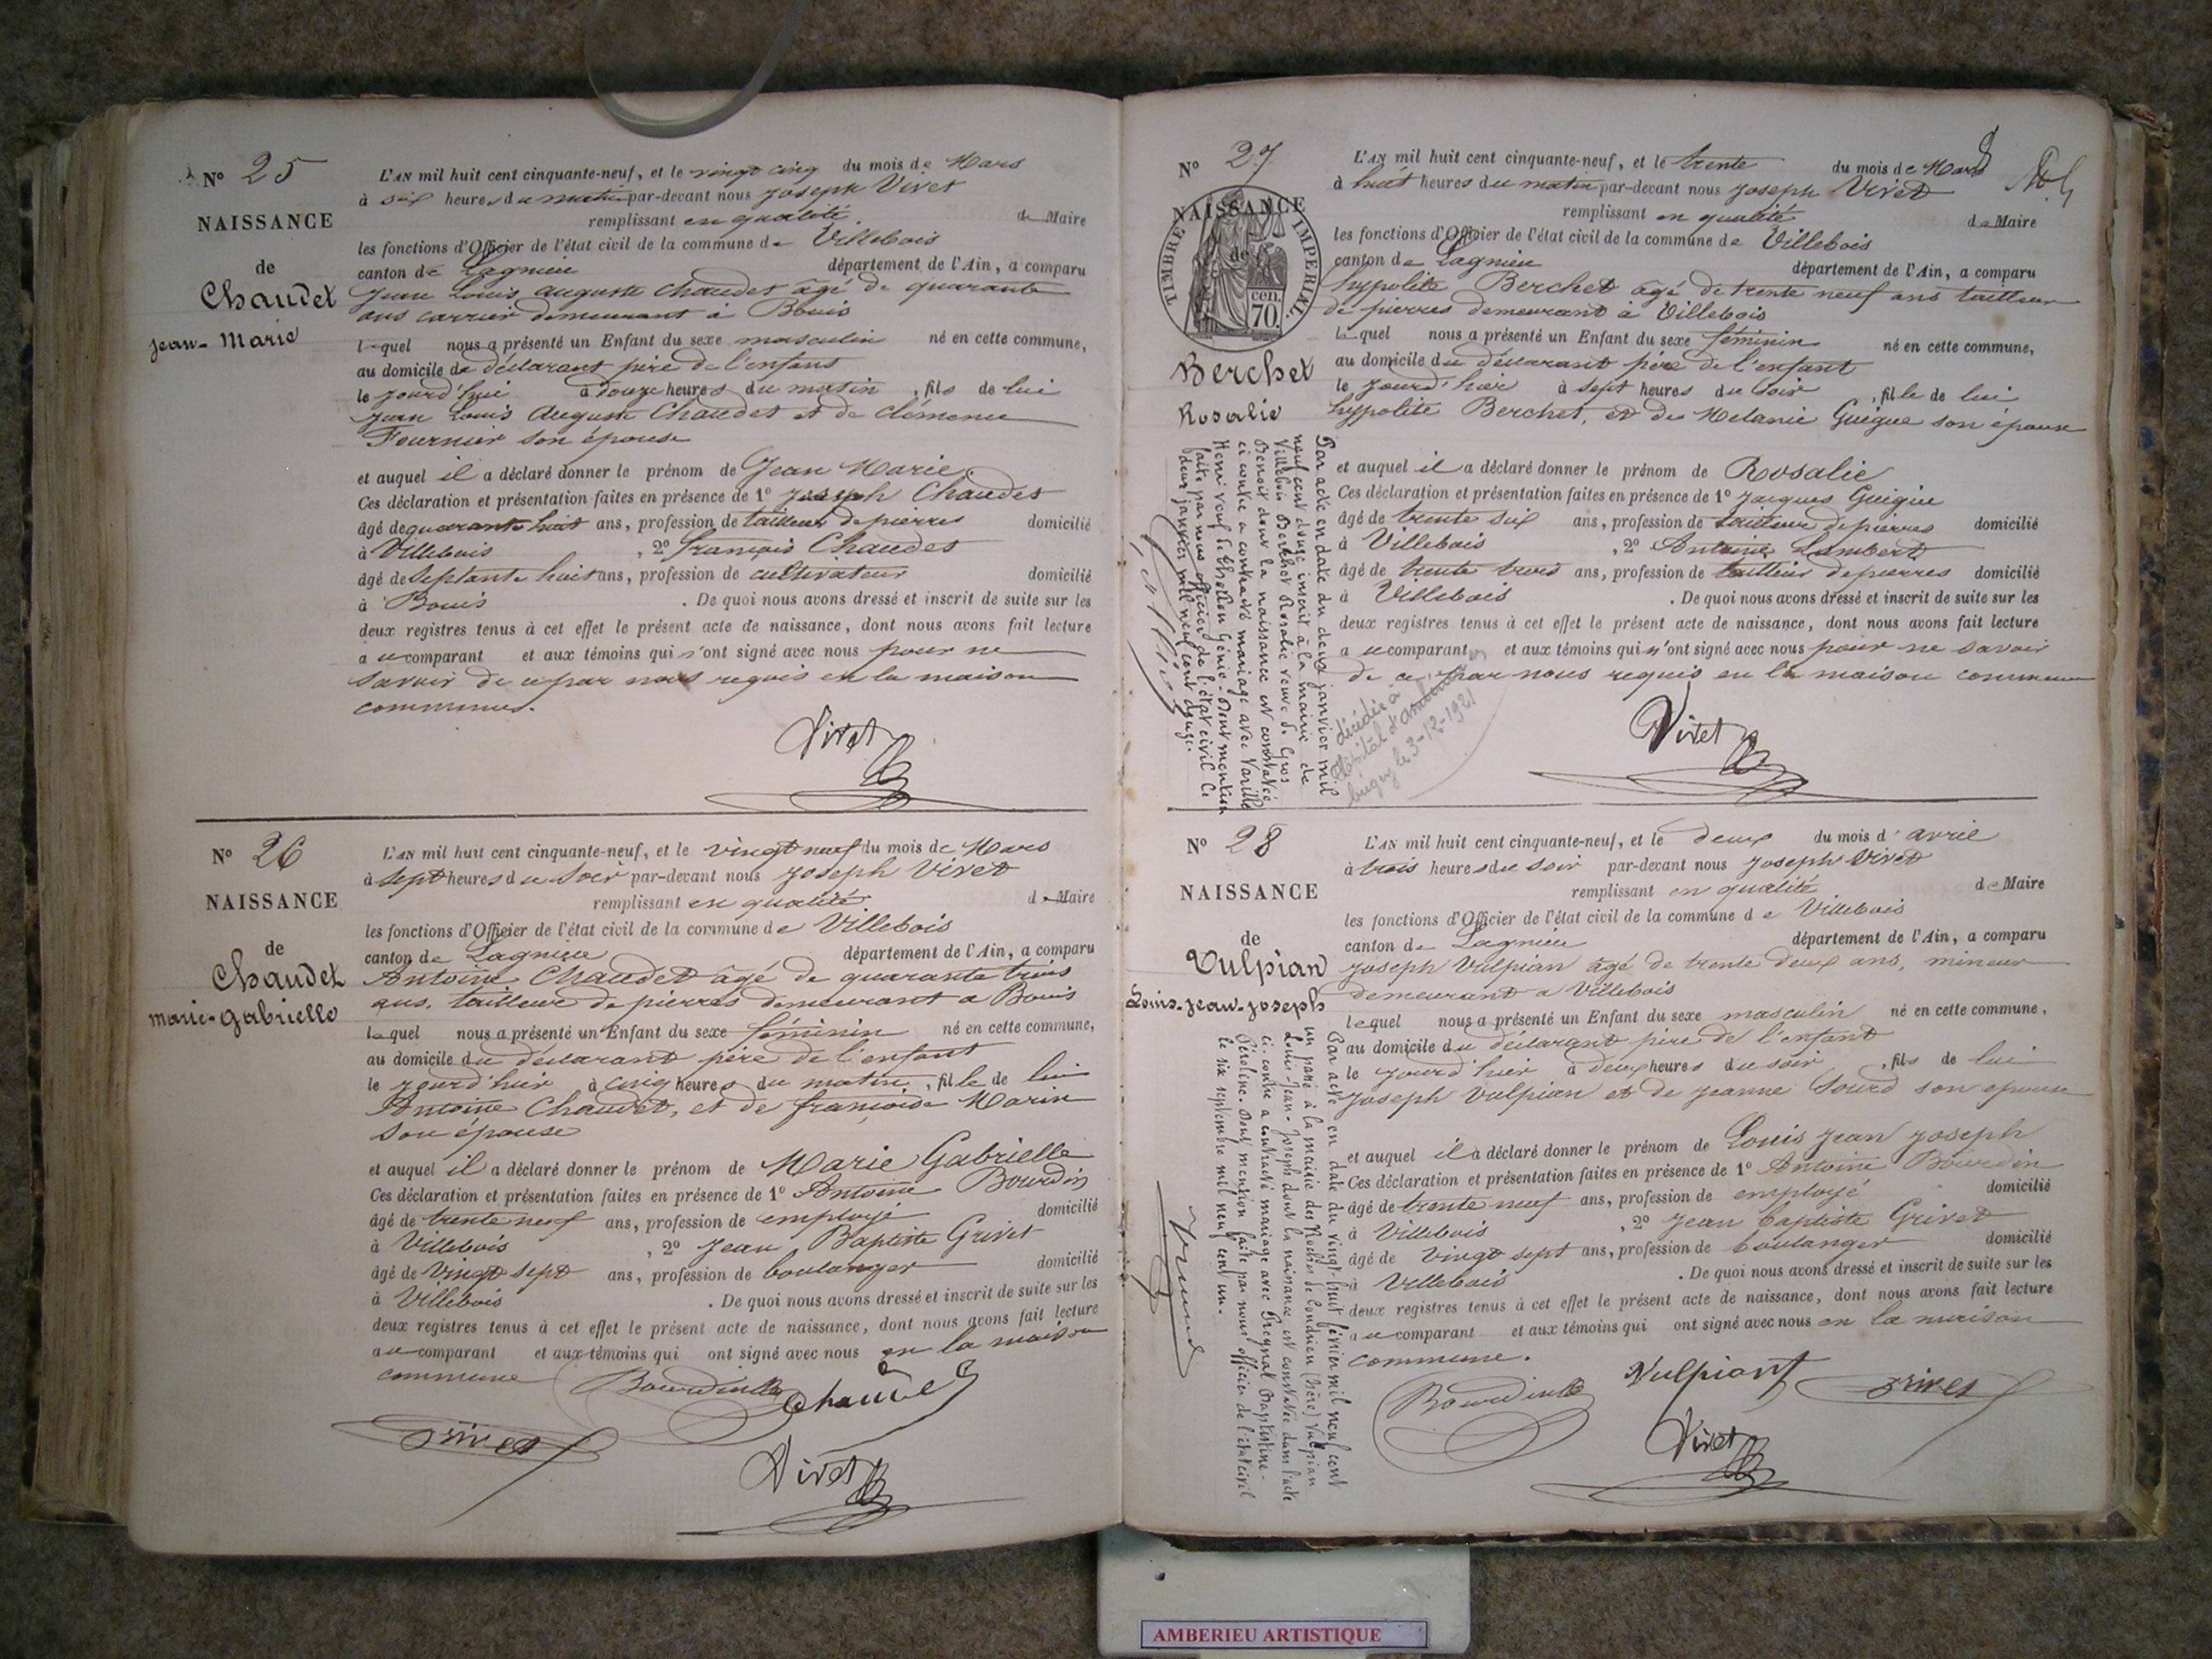 N° 25
NAISSANCE
de
Chaudet
Jean-Marie
L'AN mil huit cent cinquante-neuf, et le vingt cinq du mois de Mars
à six heures du matin par-devant nous Joseph Vivet
remplissant en qualité de Maire
les fonctions d'Officier de l'état civil de la commune de Villebois
canton de Lagnieu département de l'Ain, a comparu
Jean Louis Auguste Chaudet âgé de quarante
ans carrier demeurant à Bouis
lequel nous a présenté un Enfant du sexe masculin né en cette commune,
au domicile de déclarant père de l'enfant
le jourd'hui à douze heures du matin, fils de lui
Jean Louis Auguste Chaudet et de Clémence
Fournier son épouse
et auquel il a déclaré donner le prénom de Jean Marie.
Ces déclaration et présentation faites en présence de 1° Joseph Chaudet
âgé de quarante huit ans, profession de tailleur de pierres domicilié
à Villebois, 2° françois Chaudet
âgé de septante huit ans, profession de cultivateur domicilié
à Bouis. De quoi nous avons dressé et inscrit de suite sur les
deux registres tenus à cet effet le présent acte de naissance, dont nous avons fait lecture
au comparant et aux témoins qui n'ont signé avec nous pour ne
savoir de ce par nous requis en la maison
commune.
Vivet
N° 26
NAISSANCE
de
Chaudet
marie-Gabrielle
L'AN mil huit cent cinquante-neuf, et le vingt neuf du mois de Mars
à sept heures du soir par-devant nous Joseph Vivet
remplissant en qualité de Maire
les fonctions d'Officier de l'état civil de la commune de Villebois
canton de Lagnieu département de l'Ain, a comparu
Antoine Chaudet âgé de quarante trois
ans, tailleur de pierres demeurant a Bouis
lequel nous a présenté un Enfant du sexe féminin né en cette commune,
au domicile du déclarant père de l'enfant
le jourd'hui à cinq heures du matin, fille de lui
Antoine Chaudet, et de françoise Marin
son épouse
et auquel il a déclaré donner le prénom de Marie Gabrielle
Ces déclaration et présentation faites en présence de 1° Antoine Bourdin
âgé de trente neuf ans, profession de employé domicilié
à Villebois, 2° Jean Baptiste Grivet
âgé de vingt sept ans, profession de boulanger domicilié
à Villebois. De quoi nous avons dressé et inscrit de suite sur les
deux registres tenus à cet effet le présent acte de naissance, dont nous avons fait lecture
au comparant et aux témoins qui ont signé avec nous en la maison
commune
Bourdin Chaudet
Grivet
Vivet
N° 27
NAISSANCE
de
TIMBRE IMPERIAL.
70 cen.
Berchet
Rosalie
L'AN mil huit cent cinquante-neuf, et le trente du mois de Mars
à huit heures du matin par-devant nous Joseph Vivet
remplissant en qualité de Maire
les fonctions d'Officier de l'état civil de la commune de Villebois
canton de Lagnieu département de l'Ain, a comparu
hypolite Berchet âgé de trente neuf ans tailleur
de pierres demeurant à Villebois
lequel nous a présenté un Enfant du sexe féminin né en cette commune,
au domicile du déclarant père de l'enfant
le jourd'hier à sept heures du soir, fille de lui
hypolite Berchet, et de Melanie Guigue son épouse
et auquel il a déclaré donner le prénom de Rosalie
Ces déclaration et présentation faites en présence de 1° Jacques Guigue
âgé de trente six ans, profession de tailleur de pierres domicilié
à Villebois, 2° Antoine Lambert
âgé de trente trois ans, profession de tailleur de pierres domicilié
à Villebois. De quoi nous avons dressé et inscrit de suite sur les
deux registres tenus à cet effet le présent acte de naissance, dont nous avons fait lecture
au comparant et aux témoins qui n'ont signé avec nous pour ne savoir
de ce par nous requis en la maison commune
Vivet
Par acte en date du deux janvier mil
neuf cent douze inscrit à la mairie de
Villebois Berchet Rosalie veuve de Gros
Benoit dont la naissance est constatée
ci contre a contracté mariage avec Varille
Henri veuf de Génie. Dont mention
faite par nous officier de l'état civil le
deux janvier mil neuf cent douze.
décédée à
l'hôpital d'ambérieu en
bugey le 3-12-1921
N° 28
NAISSANCE
de
Vulpian
Louis-Jean-Joseph
L'AN mil huit cent cinquante-neuf, et le deux du mois d'avril
à trois heures du soir par-devant nous Joseph Vivet
remplissant en qualité de Maire
les fonctions d'Officier de l'état civil de la commune de Villebois
canton de Lagnieu département de l'Ain, a comparu
Joseph Vulpian âgé de trente deux ans, mineur
demeurant a Villebois
lequel nous a présenté un Enfant du sexe masculin né en cette commune,
au domicile du déclarant père de l'enfant
le jourd'hier à deux heures du soir, fils de lui
Joseph Vulpian et de Jeanne Sourd son épouse
et auquel il a déclaré donner le prénom de Louis Jean Joseph
Ces déclaration et présentation faites en présence de 1° Antoine Bourdin
âgé de trente neuf ans, profession de employé domicilié
à Villebois, 2° Jean baptiste Grivet
âgé de vingt sept ans, profession de boulanger domicilié
à Villebois. De quoi nous avons dressé et inscrit de suite sur les
deux registres tenus à cet effet le présent acte de naissance, dont nous avons fait lecture
au comparant et aux témoins qui ont signé avec nous en la maison
commune.
Bourdin Vulpian Grivet
Vivet
Par acte en date du vingt-huit février mil neuf cent
un passé à la mairie des Roches de Condrieu (Isère) Vulpian
Louis-Jean-Joseph dont la naissance est constatée dans l'acte
ci-contre a contracté mariage avec Baptistine-
Péroline. Dont mention faite par nous officier de l'état civil
le six septembre mil neuf cent un.
AMBERIEU ARTISTIQUE